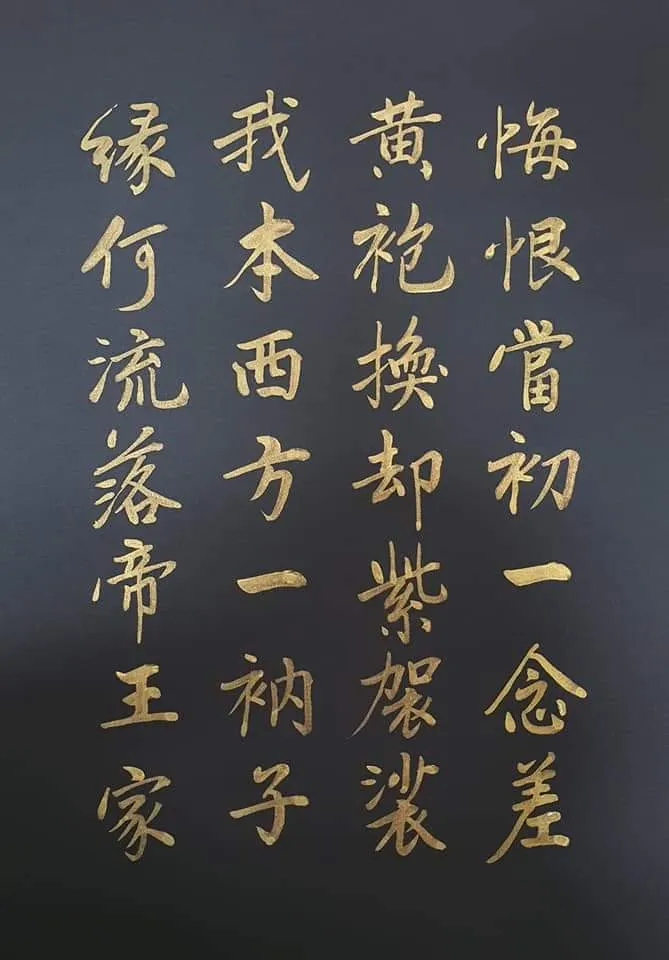 悔恨當初一念差
黄袍換却紫袈裟
我本西方一衲子
緣何流落帝王家